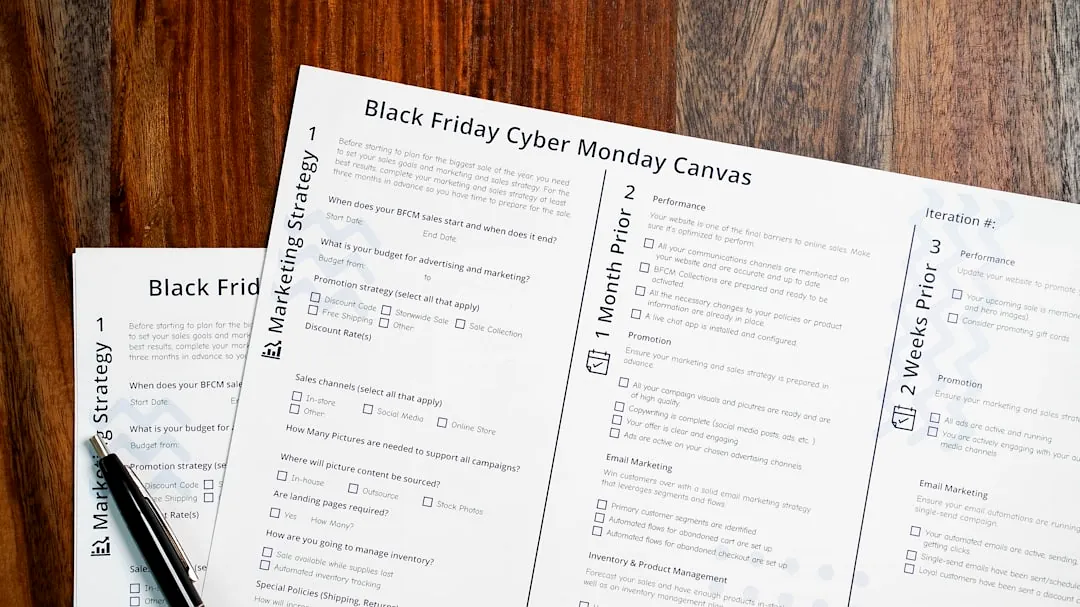 Black Friday Cyber Monday Canvas
1
Marketing Strategy
Before starting to plan for the biggest sale of the year, you need
to set your sales goals and marketing and sales strategy. For the
best results, complete your marketing and sales strategy at least
three months in advance so you have time to prepare for the sale.
When does your BFCM sales start and when does it end?
Start Date:
End Date:
What is your budget for advertising and marketing?
Budget from:
to
Promotion strategy (select all that apply)
Discount Code
Storewide Sale
Sale Collection
Free Shipping
Other
Discount Rate(s)
Sales channels (select all that apply)
In-store
Social Media
Online Store
Other
How Many Pictures are needed to support all campaigns?
Where will picture content be sourced?
In-house
Outsource
Stock Photos
Are landing pages required?
Yes
How Many?
How are you going to manage inventory?
Sale available while supplies lost
Automated inventory tracking
Special Policies (Shipping, Returns
How will
2
1 Month Prior
Performance
Your website is one of the final barriers to online sales. Make
sure it's optimized to perform.
All your communications channels are mentioned on
your website and are accurate and up to date
BFCM Collections are prepared and ready to be
activated.
All the necessary changes to your policies or product
information are already in place.
A live chat app is installed and configured.
Promotion
Ensure your marketing and sales strategy is prepared in
advance.
All your campaign visuals and picutres are ready and are
of high quality.
Copywriting is complete (social media posts, ads, etc. )
Your offer is clear and engaging
Ads are active on your chosen advertising channels
Email Marketing
Win customers over with a solid email marketing strategy
that leverages segments and flows
Primary customer segments are identified
Automated flows for abandoned cart are set up
Automated flows for abandoned checkout are set up
Inventory & Product Management
Forecast your sales and have enough products in-st
well as an inventory management
Iteration #:
3
2 Weeks Prior
Performance
Update your website to promote
Your upcoming sale is mentioned
and hero images)
Consider promoting gift cards
Promotion
Ensure your marketing and sales strate
All ads are active and running
You are actively engaging with your au
media channels
Email Marketing
Ensure your email automations are running
single-send campaign.
Your automated emails are active, sending,
getting clicks.
Single-send emails have been sent/schedule
Loyal customers have been sent a discount c
Black Frid
1
Marketing Strategy
Before starting to plan for the bi
to set your sales goals and mark
best results, complete your mar
three months in advance so yo
When does your BFCM sale
Start Date:
En
What is your budget for
Budget from:
Promotion strategy (se
Discount Code
S
Free Shipping
t Rate(s)
Sales
In-s
Other